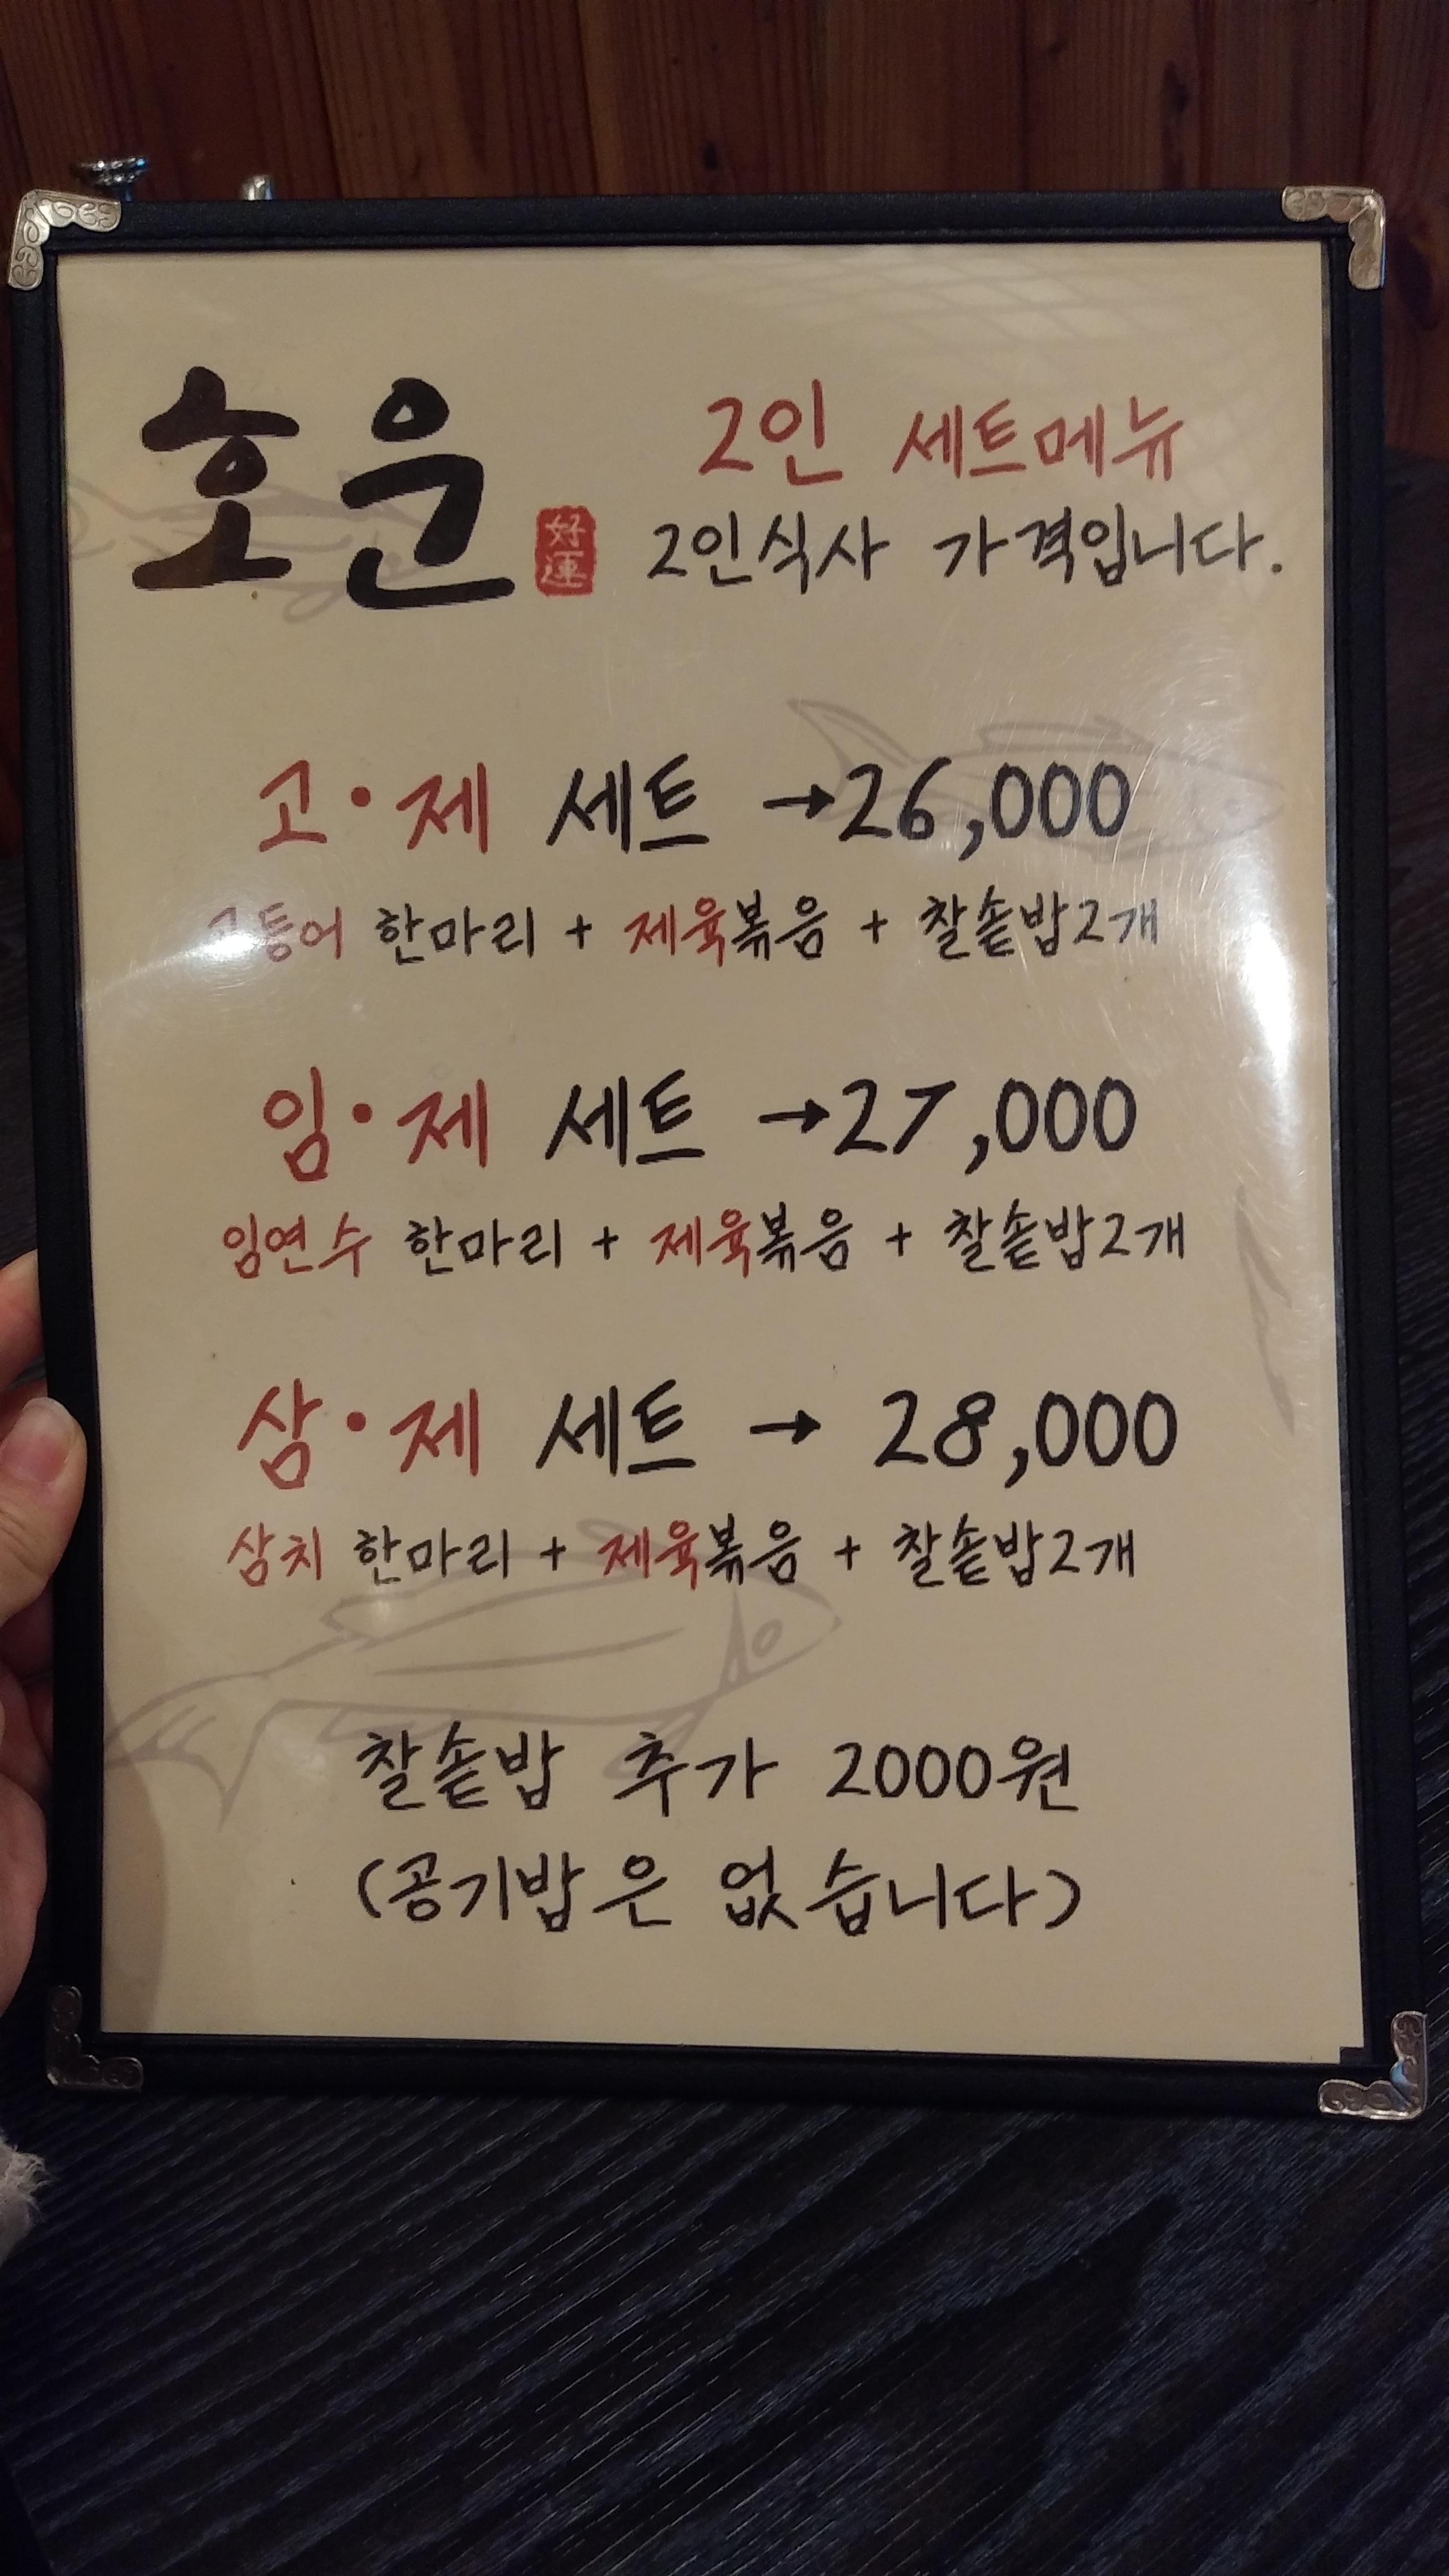 호운 2인 세트메뉴
好運 2인식사 가격입니다.
고·제 세트 →26,000
고등어 한마리 + 제육볶음 + 찰솥밥2개
임·제 세트 →27,000
임연수 한마리 + 제육볶음 + 찰솥밥2개
삼·제 세트 → 28,000
삼치 한마리 + 제육볶음 + 찰솥밥2개
찰솥밥 추가 2000원
(공기밥은 없습니다)